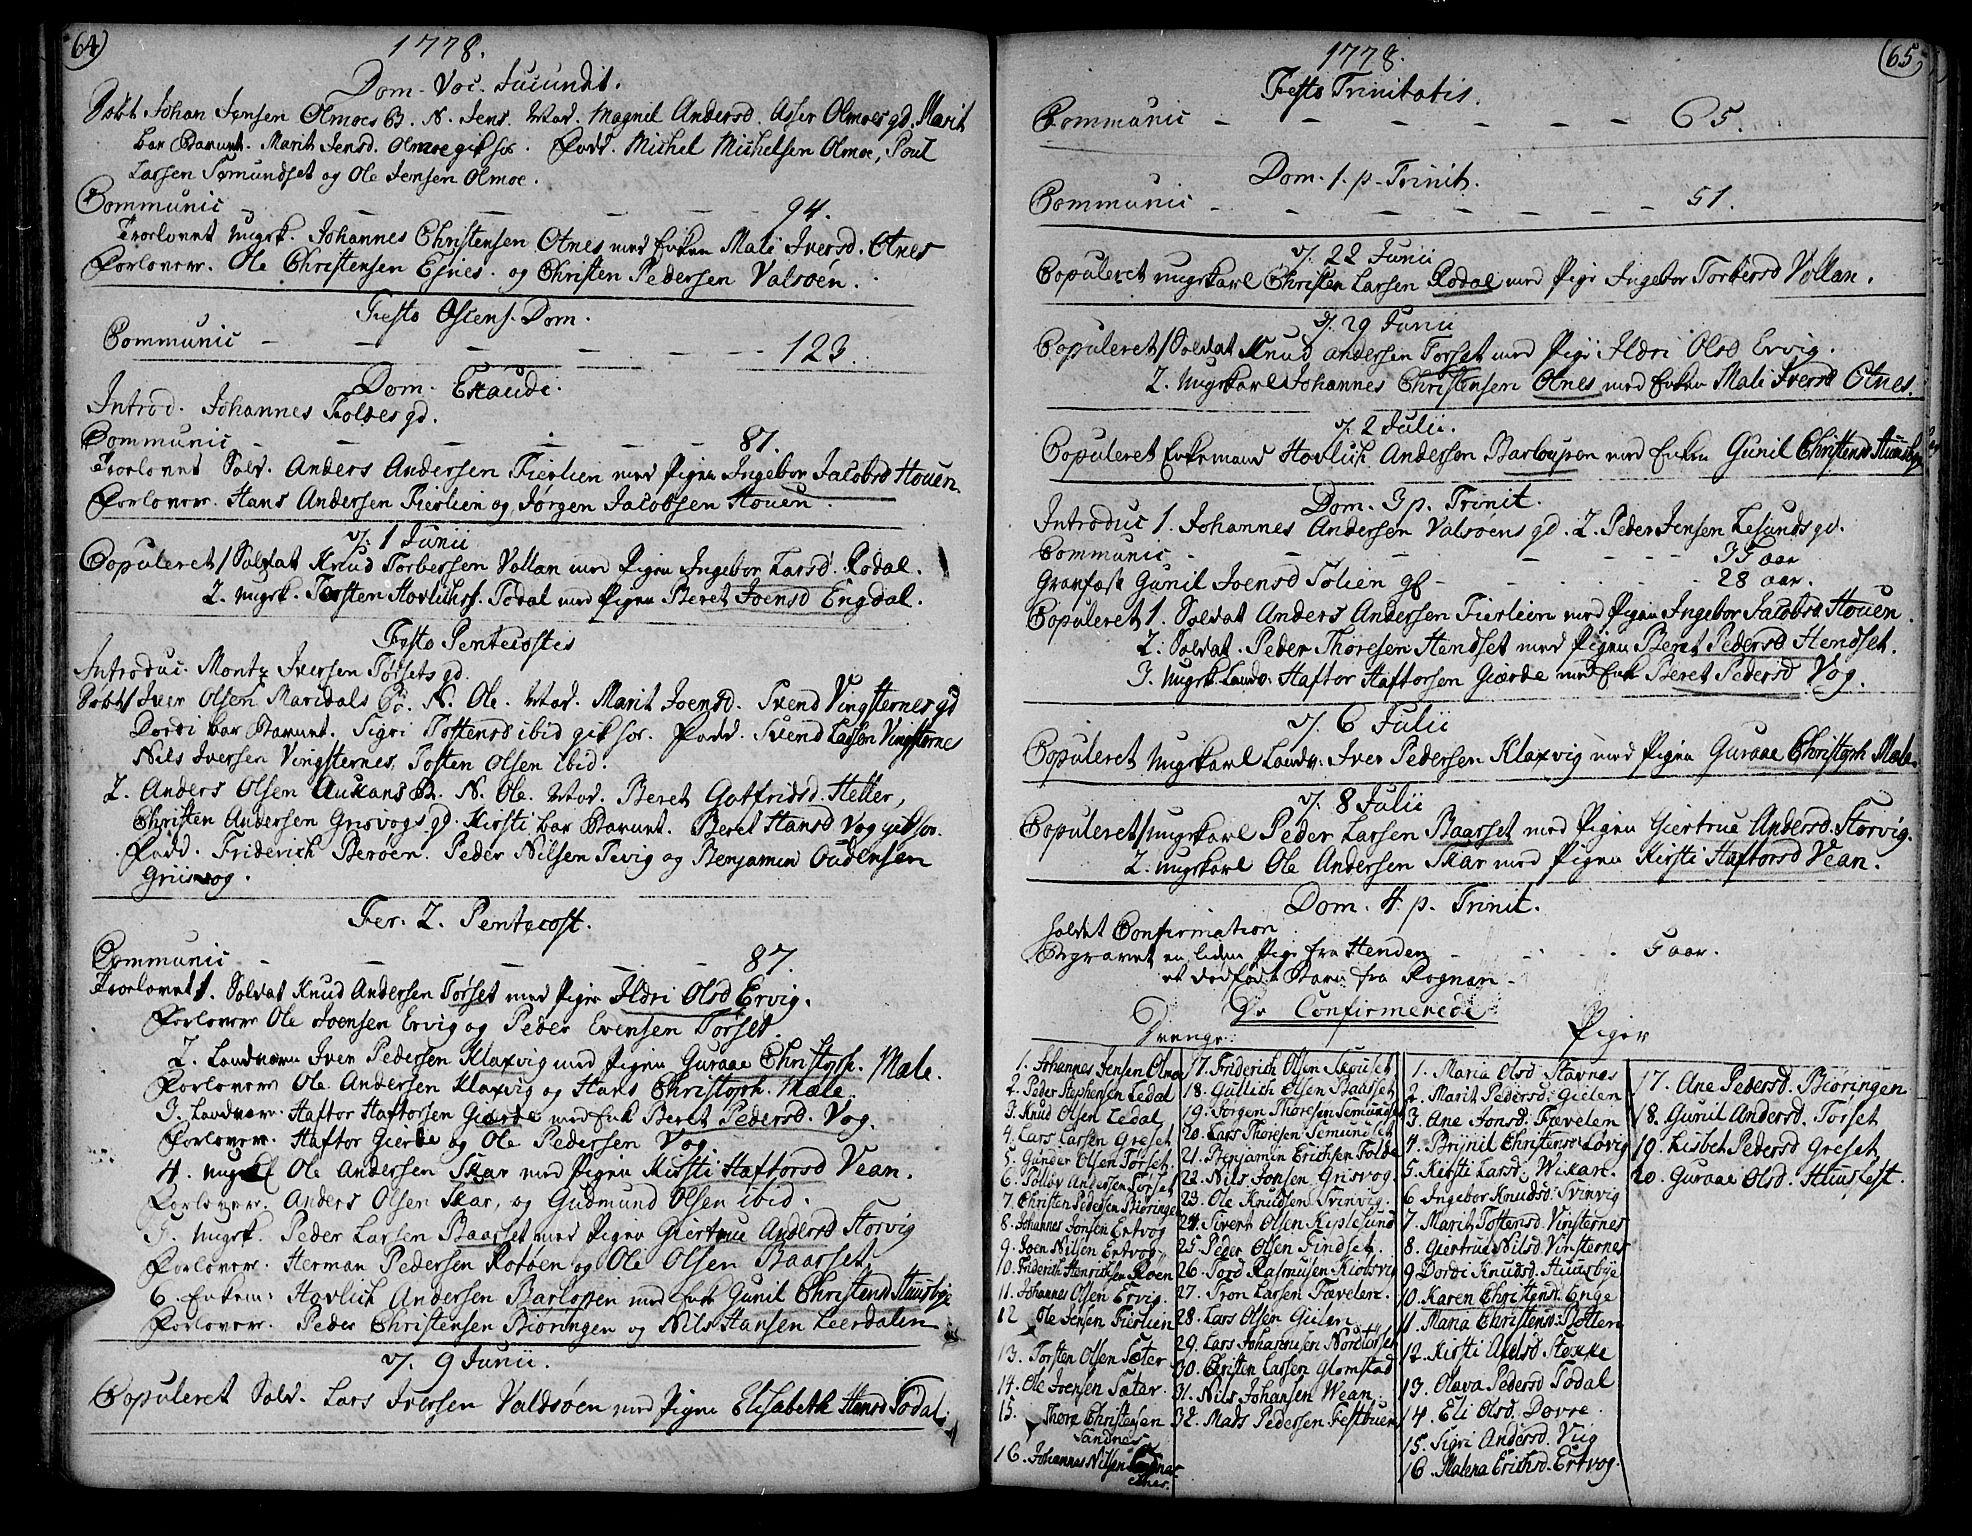 64
1778.
Dom. Voc. Jucundit.
Døbt Johan Jensen Olmoes B. N. Jens. Mod. Magnil Andersd. Asser Olmoes gd. Marit
bar Barnet. Marit Jensd. Olmoe gik hos. Fadd. Michel Michelsen Olmoe, Poul
Larsen Semundset og Ole Jensen Olmoe.
Communic - - - - 94.
Trorlovet Ungk. Johannes Christensen Otnes med Enken Mali Iversd. Otnes
Forlover. Ole Christensen Egnes. og Christen Pedersen Valsøen.
Festo Ascens. Dom.
Communic - - - - 123.
Dom. Exaudi.
Introd. Johannes Foldes gd.
Communic - - - - 87.
Trorlovet Sold. Anders Andersen Fierlien med Pigen Ingebor Jacobsd Houen.
Forlover. Hans Andersen Fierlien og Jørgen Jacobsen Houen.
d. 1 Junii
Copuleret 1 Soldat Knud Torbersen Vollan med Pigen Ingebor Larsd. Rodal.
2. Ungk. Torsten Hovlichs. Todal med Pigen Beret Joensd Engdal.
Festo Pentecostes
Introduc. Montz Iversen Torsets gd.
Døbt 1 Iver Olsen Mardals B. N. Ole. Mod. Marit Joensd. Svend Vingsternes gd
Dordi bar Barnet. Sigri Tostensd ibid gik hos. Fadd. Svend Larsen Vingsternes
Nils Iversen Vingsternes, Tosten Olsen ibid.
2. Anders Olsen Aukans B. N. Ole. Mod. Beret Gotfridsd. Heller,
Christen Andersen Grisvogs gd. Kirsti bar Barnet. Beret Hansd Vog gik hos.
Fadd. Friderich Berøen. Peder Nilsen Pevig og Benjamin Oudensen
Grisvog.
Fer. 2. Pentecost.
Communic - - - - 87.
Trorlovet 1. Soldat Knud Andersen Torset med Pigen Ildri Olsd Ervig.
Forlover Ole Joensen Ervig og Peder Evensen Torset.
2. Landvern Iver Pedersen Klaxvig med Pigen Guraae Christoph. Mæle.
Forlover Ole Andersen Klaxvig og Hans Christoph. Mæle.
3. Landvern. Haftor Haftorsen Gierde med Enk Beret Pedersd. Vog.
Forlover. Haftor Gierde og Ole Pedersen Vog
4. Ungk Ole Andersen Skar med Pigen Kirsti Haftorsd Vean.
Forlover. Anders Olsen Skar, og Gudmund Olsen ibid.
5. Ungk. Peder Larsen Baarset med Pigen Giertrue Andersd Storvig
Forlover. Herman Pedersen Rotøen og Ole Olsen Baarset
6. Enkem: Hovlich Andersen Barloppen med Enk Gunil Christensd Huusbye
Forlover. Peder Christensen Biøringen og Nils Hansen Leerdalen
d. 9 Junii.
Copuleret Sold. Lars Iversen Valdsøen med Pigen Elisabeth Hansd Todal.
65
1778.
Festo Trinitatis.
Communic - - - - 65.
Dom. 1. p. Trinit.
Communic - - - - 51.
d. 22 Junii
Copuleret ungkarl Christen Larsen Rodal med Pige Ingebor Torbersd Vollan.
d. 29 Junii
Copuleret 1 Soldat Knud Andersen Torset med Pige Ildri Olsd Ervig.
2. Ungkarl Johannes Christensen Otnes med Enken Mali Iversd Otnes.
d. 2 Julii.
Copuleret Enkemand Hovlich Andersen Barloupen med Enken Gunil Christensd Huusbye
Dom. 3 p. Trinit.
Introduc 1. Johannes Andersen Valsøens gd. 2. Peder Jensen Lesunds gd.
Communic - - - -
Graafæst Gunil Joensd Tolien - - 28 aar.
Copuleret 1. Soldat Anders Andersen Fierlien med Pigen Ingebor Jacobsd Houen.
2. Soldat Peder Thoresen Hendset med Pigen Beret Pedersd Hendset.
3. Ungk. Landv. Haftor Haftorsen Gierde med Enk Beret Pedersd Vog.
d. 6 Julii
Copuleret Ungkarl Landv. Iver Pedersen Klaxvig med Pigen Guraae Christoph Mæle.
d. 8 Julii
Copuleret 1 ungkarl Peder Larsen Baarset med Pigen Giertrue Andersd. Storvig.
2. ungkarl Ole Andersen Skar med Pigen Kirsti Haftorsd Vean.
Dom. 4. p. Trinit.
holdet Confirmation
Begravet en liden Pige fra Henden - - - 5 aar.
et dødfød Barn fra Rognan -
De Confirmerede
Drenge
1. Johannes Jensen Olmoe
2. Peder Stephensen Ledal
3. Knud Olsen Ledal
4. Lars Larsen Greset
5. Gunder Olsen Torset
6. Andersen Torset
7. Christen Pedersen Biøringen
8. Johannes Jonsen Ertvog
9. Joen Nilsen Ertvog
10. Friderich Henrichsen Roen
11. Johannes Olsen Ervig
12. Ole Jensen Fierlien
13. Torsten Olsen Sæter
14. Ole Joensen Sætar.
15. Thore Christensen
Sandnes
16. Johannes Nilsen
17. Friderich Olsen Skouset
18. Gullich Olsen Baarset
19. Jørgen Thoresen Semundset
20. Lars Thoresen Semundset
21. Benjamin Erichsen Folde
22. Nils Jonsen Grisvog
23. Ole Knudsen Svinvig
24. Sivert Olsen Kiplesund
25. Peder Olsen Findset.
26. Tord Rasmusen Kiorsvig
27. Tron Larsen Tævelen.
28. Lars Olsen Gielen
29. Lars Johannesen Nordtorset
30. Christen Larsen Glomstad
31. Nils Johansen Wean.
32. Mads Pedersen Festbuen
Piger
1. Maria Olsd Stavnes
2. Marit Pedersd. Gielen
3. Ane Jonsd. Tævelen
4. Brynil Christensd Løvig
5. Kirsti Larsd. Wikan.
6. Ingebor Knudsd. Svinvig
7. Marit Tostensd. Vinsternes
8. Giertrue Nilsd. Vinsternes
9. Dordi Knudsd. Huusbye
10. Karen Christensd. Enge
11. Maria Christensd. Botten
12. Kirsti Stokke
13. Olava Pedersd Todal
14. Eli Olsd. Dovre.
15. Sigri Andersd. Viig
16. Malena Erichsd. Ertvog.
17. Ane Pedersd. Biøringen
18. Gunil Andersd. Torset
19. Lisbet Pedersd Greset
20. Guraae Olsd.